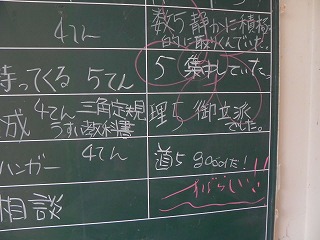 4てん
数5 静かに積極
的に取りくんでいた。
持ってくる 5てん
5 集中していた。
成 4てん 三角定規
うすい教科書
理5 御立派
でした。
ハンガー 4てん
道5 goodだ!!!
相談